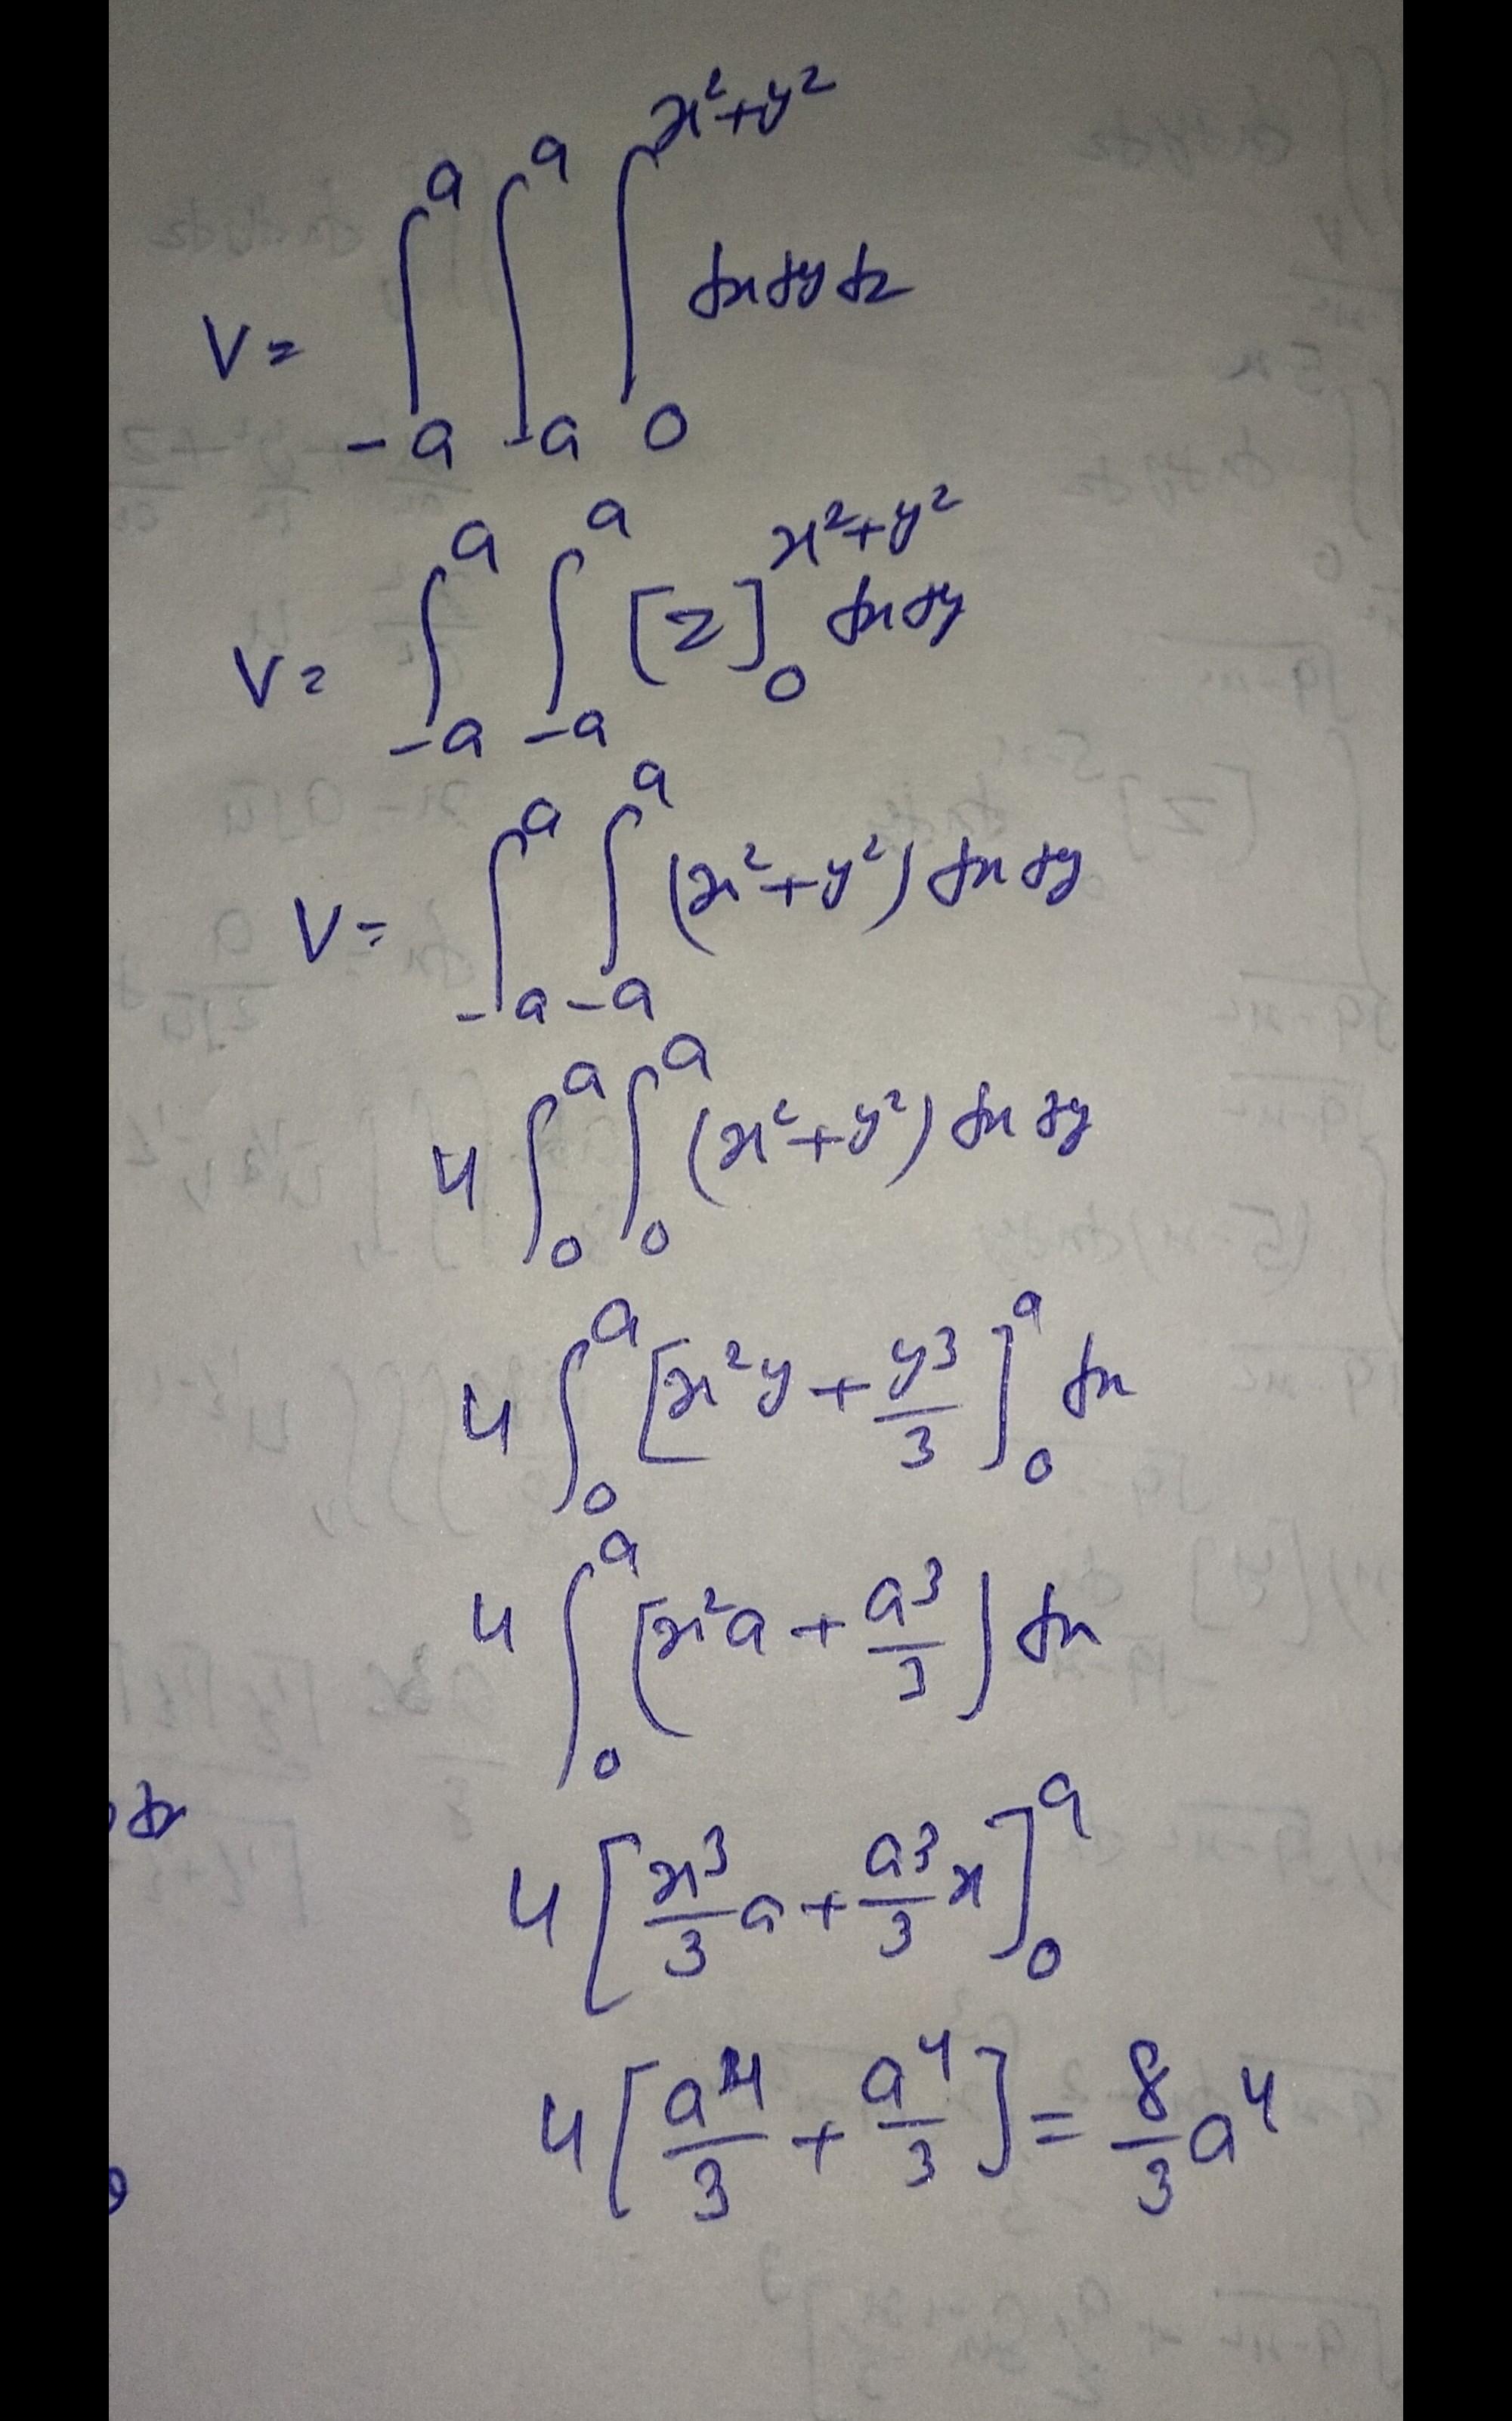 V = ∫_{-a}^{a} ∫_{-a}^{a} ∫_{0}^{x²+y²} dx dy dz
V = ∫_{-a}^{a} ∫_{-a}^{a} [z]_{0}^{x²+y²} dx dy
V = ∫_{-a}^{a} ∫_{-a}^{a} (x²+y²) dx dy
4 ∫_{0}^{a} ∫_{0}^{a} (x²+y²) dx dy
4 ∫_{0}^{a} [x²y + y³/3]_{0}^{a} dx
4 ∫_{0}^{a} (x²a + a³/3) dx
4 [x³/3 a + a³/3 x]_{0}^{a}
4 [a⁴/3 + a⁴/3] = 8/3 a⁴